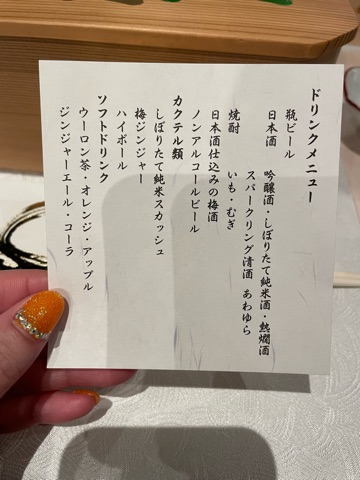 ドリンクメニュー
瓶ビール
日本酒　吟醸酒・しぼりたて純米酒・熱燗酒
スパークリング清酒　あわゆら
焼酎　いも・むぎ
日本酒仕込みの梅酒
ノンアルコールビール
カクテル類
しぼりたて純米スカッシュ
梅ジンジャー
ハイボール
ソフトドリンク
ウーロン茶・オレンジ・アップル
ジンジャーエール・コーラ